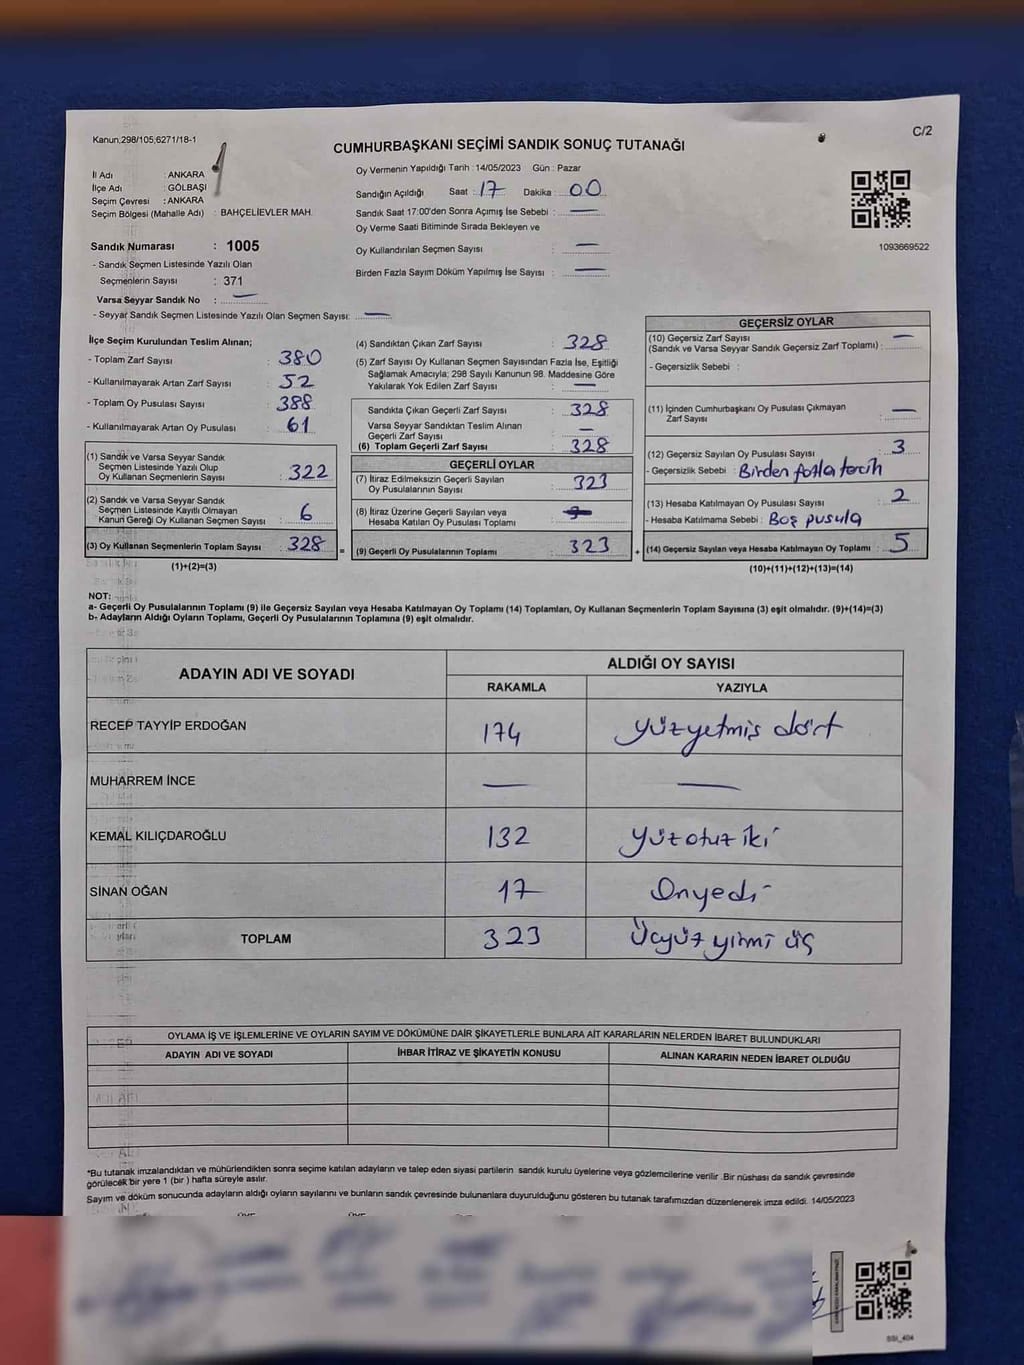 Kanun,298/105,6271/18-1
C/2
CUMHURBAŞKANI SEÇİMİ SANDIK SONUÇ TUTANAĞI
İl Adı : ANKARA
İlçe Adı : GÖLBAŞI
Seçim Çevresi : ANKARA
Seçim Bölgesi (Mahalle Adı) : BAHÇELİEVLER MAH.
Sandık Numarası : 1005
- Sandık Seçmen Listesinde Yazılı Olan
Seçmenlerin Sayısı : 371
Varsa Seyyar Sandık No : —
- Seyyar Sandık Seçmen Listesinde Yazılı Olan Seçmen Sayısı: —
Oy Vermenin Yapıldığı Tarih : 14/05/2023 Gün : Pazar
Sandığın Açıldığı Saat : 17 Dakika : 00
Sandık Saat 17:00'den Sonra Açımış İse Sebebi : —
Oy Verme Saati Bitiminde Sırada Bekleyen ve
Oy Kullandırılan Seçmen Sayısı : —
Birden Fazla Sayım Döküm Yapılmış İse Sayısı : —
1093669522
İlçe Seçim Kurulundan Teslim Alınan;
- Toplam Zarf Sayısı : 380
- Kullanılmayarak Artan Zarf Sayısı : 52
- Toplam Oy Pusulası Sayısı : 388
- Kullanılmayarak Artan Oy Pusulası : 61
(1) Sandık ve Varsa Seyyar Sandık
Seçmen Listesinde Yazılı Olup
Oy Kullanan Seçmenlerin Sayısı : 322
(2) Sandık ve Varsa Seyyar Sandık
Seçmen Listesinde Kayıtlı Olmayan
Kanun Gereği Oy Kullanan Seçmen Sayısı : 6
(3) Oy Kullanan Seçmenlerin Toplam Sayısı : 328
(1)+(2)=(3)
=
(4) Sandıktan Çıkan Zarf Sayısı : 328
(5) Zarf Sayısı Oy Kullanan Seçmen Sayısından Fazla İse, Eşitliği
Sağlamak Amacıyla; 298 Sayılı Kanunun 98. Maddesine Göre
Yakılarak Yok Edilen Zarf Sayısı : —
Sandıkta Çıkan Geçerli Zarf Sayısı : 328
Varsa Seyyar Sandıktan Teslim Alınan
Geçerli Zarf Sayısı : —
(6) Toplam Geçerli Zarf Sayısı : 328
GEÇERLİ OYLAR
(7) İtiraz Edilmeksizin Geçerli Sayılan
Oy Pusulalarının Sayısı : 323
(8) İtiraz Üzerine Geçerli Sayılan veya
Hesaba Katılan Oy Pusulası Toplamı :
(9) Geçerli Oy Pusulalarının Toplamı : 323
+
GEÇERSİZ OYLAR
(10) Geçersiz Zarf Sayısı
(Sandık ve Varsa Seyyar Sandık Geçersiz Zarf Toplamı) : —
- Geçersizlik Sebebi :
(11) İçinden Cumhurbaşkanı Oy Pusulası Çıkmayan
Zarf Sayısı : —
(12) Geçersiz Sayılan Oy Pusulası Sayısı : 3
- Geçersizlik Sebebi : Birden fazla tercih
(13) Hesaba Katılmayan Oy Pusulası Sayısı : 2
- Hesaba Katılmama Sebebi : Boş pusula
(14) Geçersiz Sayılan veya Hesaba Katılmayan Oy Toplamı : 5
(10)+(11)+(12)+(13)=(14)
NOT:
a- Geçerli Oy Pusulalarının Toplamı (9) ile Geçersiz Sayılan veya Hesaba Katılmayan Oy Toplamı (14) Toplamları, Oy Kullanan Seçmenlerin Toplam Sayısına (3) eşit olmalıdır. (9)+(14)=(3)
b- Adayların Aldığı Oyların Toplamı, Geçerli Oy Pusulalarının Toplamına (9) eşit olmalıdır.
ADAYIN ADI VE SOYADI
ALDIĞI OY SAYISI
RAKAMLA YAZIYLA
RECEP TAYYİP ERDOĞAN 174 yüzyetmiş dört
MUHARREM İNCE — —
KEMAL KILIÇDAROĞLU 132 yüzotuz iki
SİNAN OĞAN 17 Onyedi
TOPLAM 323 Üçyüz yirmi üç
OYLAMA İŞ VE İŞLEMLERİNE VE OYLARIN SAYIM VE DÖKÜMÜNE DAİR ŞİKAYETLERLE BUNLARA AİT KARARLARIN NELERDEN İBARET BULUNDUKLARI
ADAYIN ADI VE SOYADI İHBAR İTİRAZ VE ŞİKAYETİN KONUSU ALINAN KARARIN NEDEN İBARET OLDUĞU
*Bu tutanak imzalandıktan ve mühürlendikten sonra seçime katılan adayların ve talep eden siyasi partilerin sandık kurulu üyelerine veya gözlemcilerine verilir .Bir nüshası da sandık çevresinde
görülecek bir yere 1 (bir ) hafta süreyle asılır.
Sayım ve döküm sonucunda adayların aldığı oyların sayılarını ve bunların sandık çevresinde bulunanlara duyurulduğunu gösteren bu tutanak tarafımızdan düzenlenerek imza edildi. 14/05/2023
SSI_404